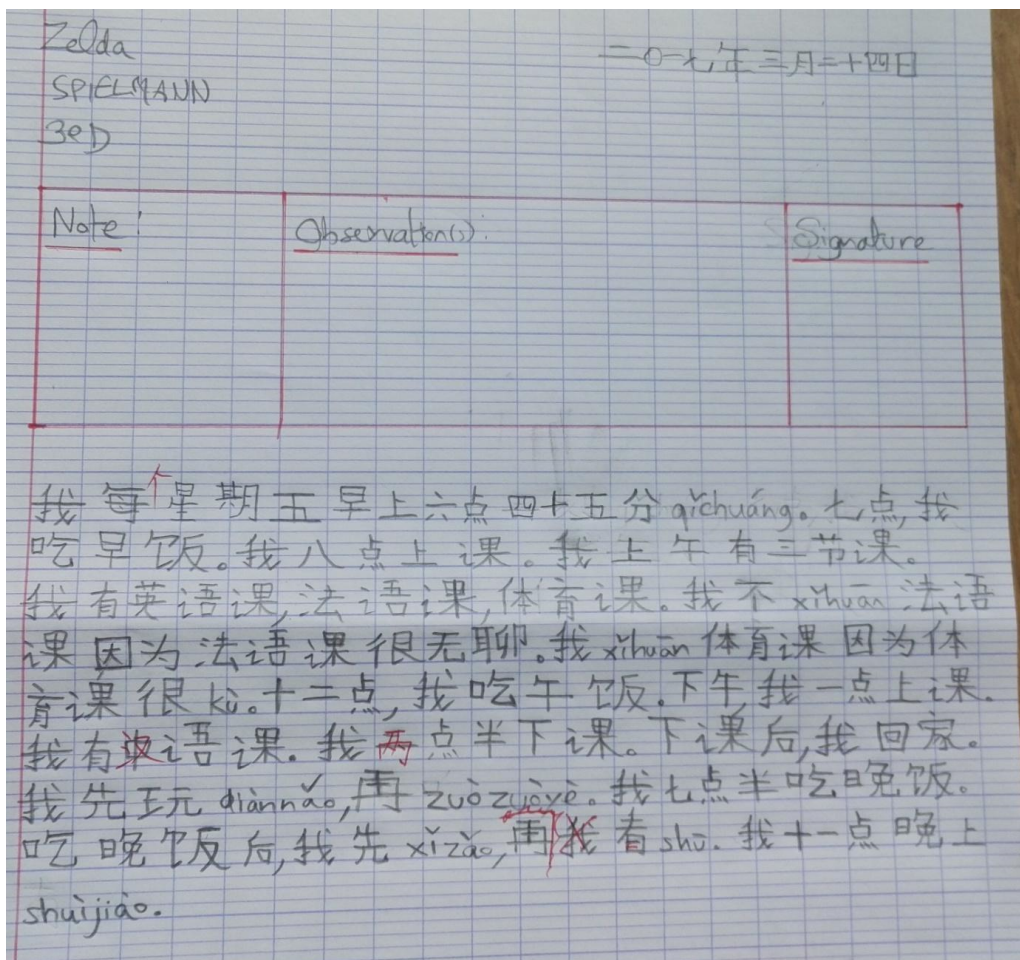 Zelda
二〇一七年三月二十四日
SPIELMANN
3eD
Note :
Observation(s) :
Signature
我每个星期五早上六点四十五分 qǐchuáng。七点,我
吃早饭。我八点上课。我上午有三节课。
我有英语课,法语课,体育课。我不 xǐhuān 法语
课因为法语课很无聊。我 xǐhuān 体育课因为体
育课很 kù。十二点,我吃午饭.下午,我一点上课.
我有汉语课. 我两点半下课。下课后,我回家。
我先玩 diànnǎo,再 zuò zuòyè。我七点半吃晚饭。
吃晚饭后,我先 xǐzǎo,再我看 shū. 我十一点晚上
shuìjiào.